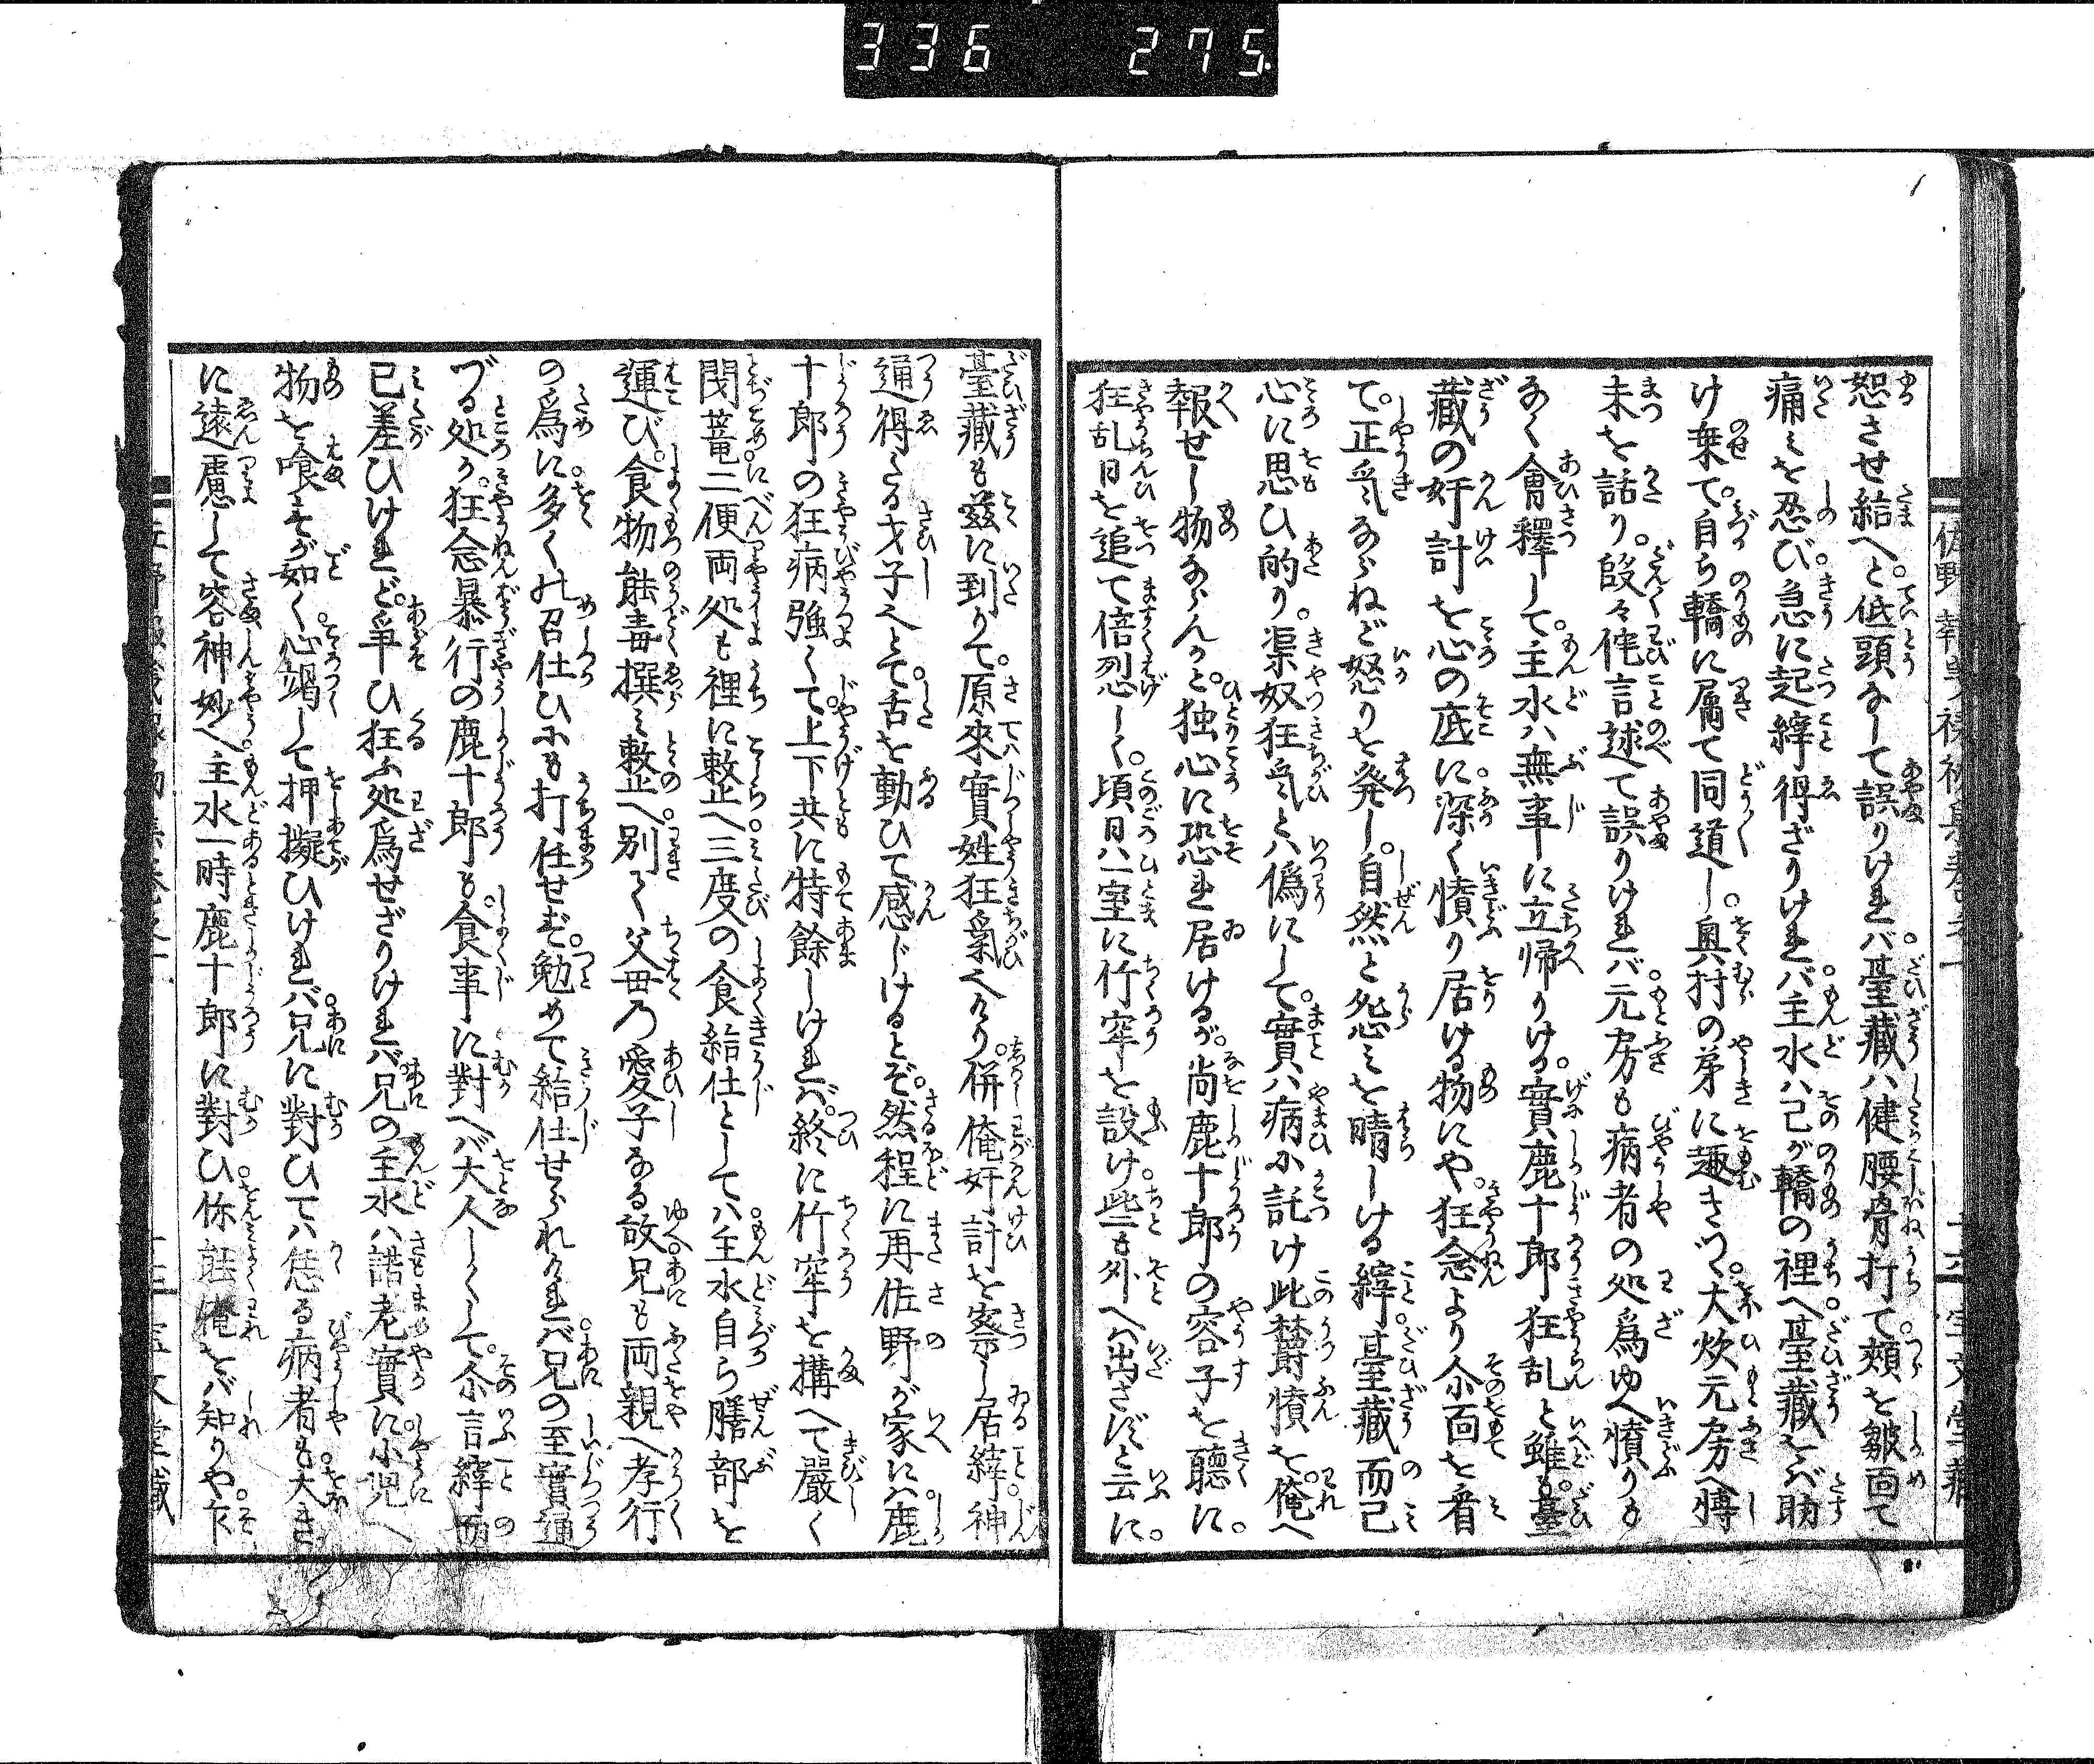 336 275
恕させ給へと。低頭なして誤りけれバ。臺藏ハ健腰骨打て。頬を皺面て
痛みを忍び。急に起繂得ざりけれバ。主水ハ己が轎の裡へ。臺藏をバ助
け乗て。自ら轎に属て同道し。奥村の第に趣きつゝ。大炊元房へ愽
末を話り。段々侘言述て誤りけれバ。元房も病者の処爲ゆへ憤りも
なく會釋して。主水ハ無事に立帰りける。實鹿十郎狂乱と雖も。臺
藏の奸計を心の底に。深く憤り居ける物にや。狂念より尒面を看
て。正氣ならねど怒りを発し。自然と怨みを晴しける繂。臺藏而己
心に思ひ的り。渠奴狂氣とハ偽にして。實ハ病に託け此欝憤を。俺へ
報せし物ならんかと。独心に恐れ居けるが。尚鹿十郎の容子を聽に。
狂乱日を追て倍烈しく。頃日ハ一室に竹窂を設け。些も外へ出さずと云に。
臺藏も茲に到りて。原來實姓狂氣へけり。併俺奸計を察し居繂神
通得たる才子へとて。舌を動ひて感じけるとぞ。然程に再佐野が家にハ。鹿
十郎の狂病強くて。上下共に特餘しけれバ。終に竹窂を搆へて嚴く
閉篭。二便両処も裡に敕正へ。三度の食給仕としてハ。主水自ら膳部を
運び。食物能毒撰み敕正へ。別て父母乃愛子なる故。兄も両親へ孝行
の爲に。多くの召仕ひにも打任せず。勉めて給仕せられけれバ。兄の至實通
づる処か。狂念暴行の鹿十郎も。食事に對へバ大人しくして。尒言繂而
已差ひけれど。爭ひ狂ふ処爲せざりけれバ。兄の主水ハ諾老實に。小児へ
物を喰すが如く。心竭して押擬ひけれバ。兄に對ひてハ恁る病者も。大き
に遠慮して容神妙へ。主水一時鹿十郎に對ひ。你能俺をバ知りや卞